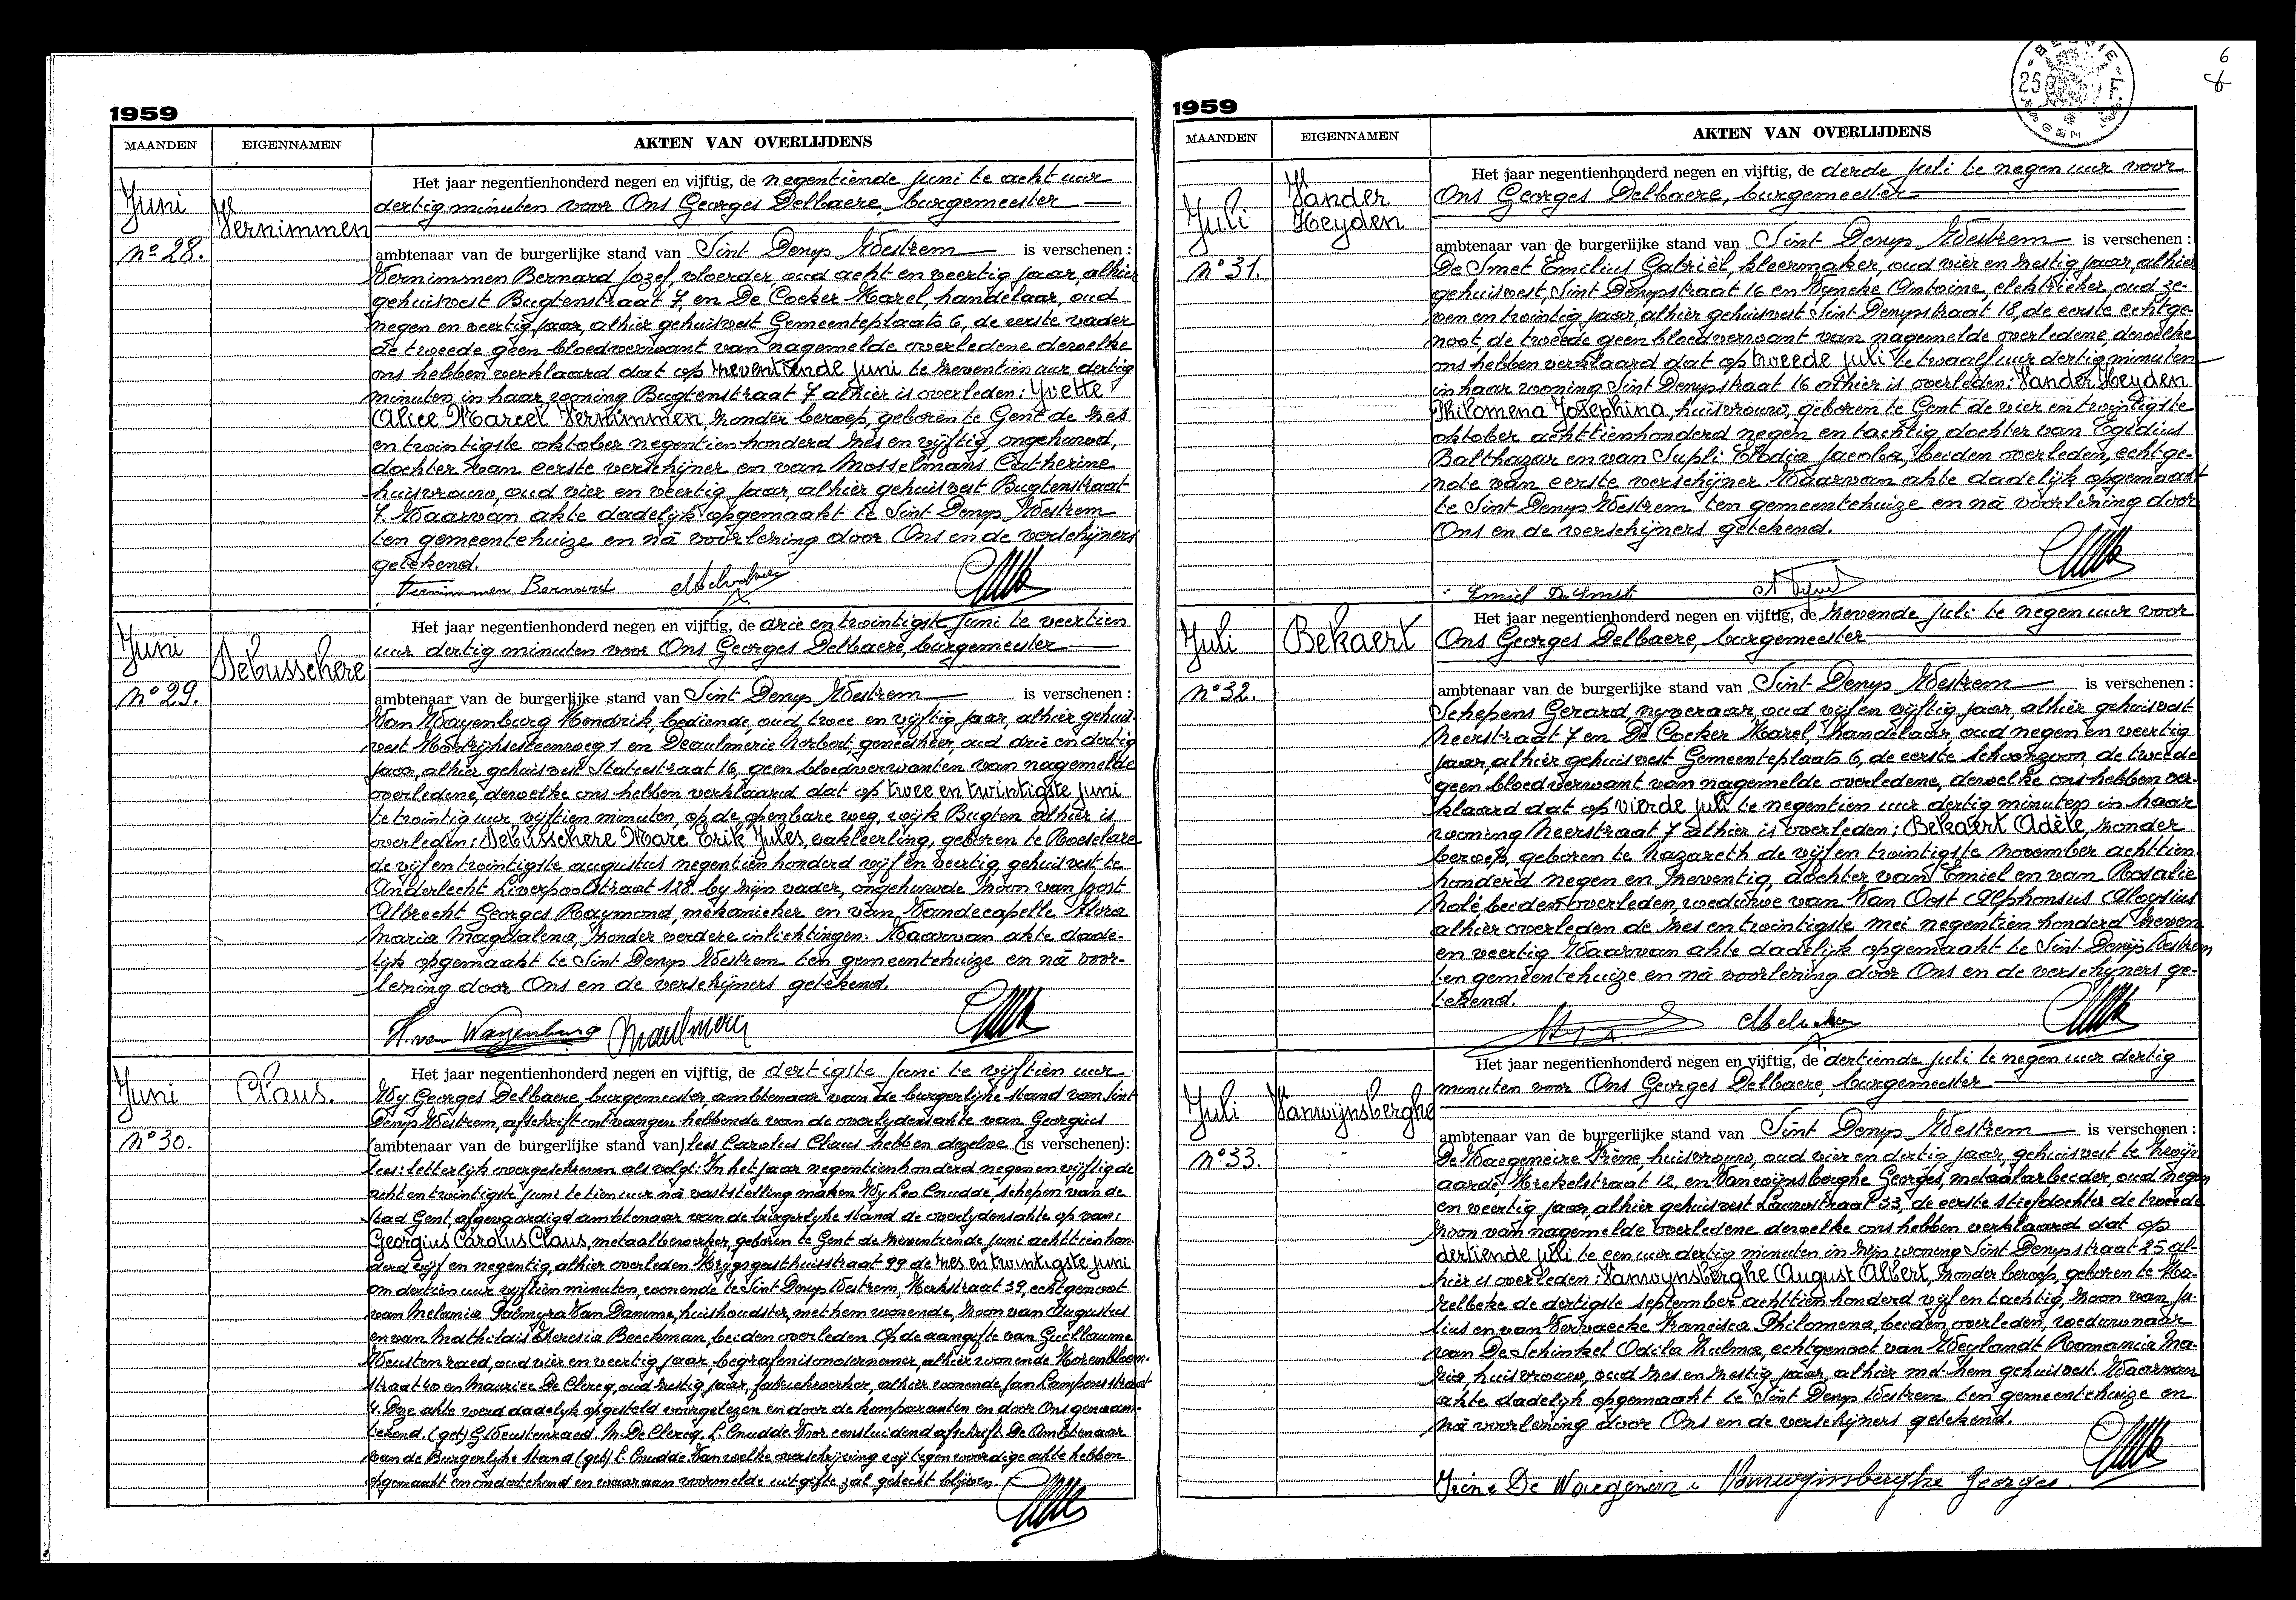 1959
MAANDEN EIGENNAMEN AKTEN VAN OVERLIJDENS
Juni
Vernimmen
Nº 28.
Het jaar negentienhonderd negen en vijftig, de negentiende juni te acht uur
dertig minuten voor Ons Georges Delbaere, burgemeester
ambtenaar van de burgerlijke stand van Sint Denys Westrem is verschenen :
Vernimmen Bernard Jozef, vloerder, oud acht en veertig jaar, alhier
gehuisvest Bugtenstraat 7, en De Cocker Karel, handelaar, oud
negen en veertig jaar, alhier gehuisvest Gemeenteplaats 6, de eerste vader
de tweede geen bloedverwant van nagemelde overledene dewelke
ons hebben verklaard dat op zeventiende juni te zeventien uur dertig
minuten in haar woning Bugtenstraat 7 alhier is overleden: Yvette
Alice Marcel Vernimmen, zonder beroep, geboren te Gent de zes
en twintigste oktober negentienhonderd zes en vijftig, ongehuwd,
dochter van eerste verschijner en van Mosselmans Catherine
huisvrouw, oud vier en veertig jaar, alhier gehuisvest Bugtenstraat
7. Waarvan akte dadelijk opgemaakt te Sint Denys Westrem
ten gemeentehuize en nà voorlezing door Ons en de verschijners
getekend.
Vernimmen Bernard
Juni
Debusschere
Nº 29.
Het jaar negentienhonderd negen en vijftig, de drie en twintigste juni te veertien
uur dertig minuten voor Ons Georges Delbaere, burgemeester
ambtenaar van de burgerlijke stand van Sint Denys Westrem is verschenen :
Van Wayenburg Hendrik, bediende, oud twee en vijftig jaar, alhier gehuis-
vest Kortrijksesteenweg 1 en Deaulmerie Norbert, geneesheer, oud drie en dertig
jaar, alhier gehuisvest Statiestraat 16, geen bloedverwanten van nagemelde
overledene, dewelke ons hebben verklaard dat op twee en twintigste juni
te twintig uur vijftien minuten, op de openbare weg, wijk Bugten alhier is
overleden: Debusschere Marc Erik Jules, vakleerling, geboren te Roeselare
de vijf en twintigste augustus negentien honderd vijf en veertig, gehuisvest te
Anderlecht Liverpoolstraat 128, by zijn vader, ongehuwde zoon van Joost
Albrecht Georges Raymond, mekanieker en van Vandecapelle Flora
Maria Magdalena, zonder verdere inlichtingen. Waarvan akte dade-
lijk opgemaakt te Sint Denys Westrem ten gemeentehuize en nà voor-
lezing door Ons en de verschijners getekend.
H. van Wayenburg
Juni
Claus.
Nº 30.
Het jaar negentienhonderd negen en vijftig, de dertigste juni te vijftien uur
Wy Georges Delbaere, burgemeester, ambtenaar van de burgerlijke stand van Sint
Denys Westrem, afschrift ontvangen hebbende van de overlydensakte van Georgius
(ambtenaar van de burgerlijke stand van) lees Carolus Claus hebben dezelve (is verschenen):
lees: letterlijk overgeschreven als volgt: In het jaar negentienhonderd negen en vijftig de
acht en twintigste juni te tien uur nà vaststelling maken Wy Leo Cnudde, schepen van de
stad Gent, afgevaardigd ambtenaar van de burgerlyke stand de overlydensakte op van:
Georgius Carolus Claus, metaalbewerker, geboren te Gent de zeventiende juni achttienhon-
derd vijf en negentig, alhier overleden Krijgsgasthuisstraat 99 de zes en twintigste juni
om dertien uur vijftien minuten, wonende te Sint Denys Westrem, Kerkstraat 39, echtgenoot
van Melania Palmyra Van Damme, huishoudster, met hem wonende, zoon van Augustus
en van Mathildis Theresia Beeckman, beiden overleden. Op de aangifte van Guillaume
Weustenraed, oud vier en veertig jaar, begrafenisondernemer, alhier wonende Korenbloem-
straat 40 en Maurice De Clercq, oud zestig jaar, fabriekwerker, alhier wonende Jan Lampensstraat
4. Deze akte werd dadelyk opgesteld voorgelezen en door de komparanten en door Ons genaam-
tekend. (get) G. Weustenraed. M. De Clercq. L. Cnudde. Voor eensluidend afschrift. De Ambtenaar
van de Burgerlyke Stand (get) L. Cnudde. Van welke overschrijving wij tegenwoordige akte hebben
opgemaakt en ondertekend en waaraan voormelde uitgifte zal gehecht blijven.
1959
BELGIE 25 F.
6
MAANDEN EIGENNAMEN AKTEN VAN OVERLIJDENS
Juli
Vander
Heyden
Nº 31.
Het jaar negentienhonderd negen en vijftig, de derde juli te negen uur voor
Ons Georges Delbaere, burgemeester
ambtenaar van de burgerlijke stand van Sint Denys Westrem is verschenen :
De Smet Emilius Gabriël, kleermaker, oud vier en zestig jaar, alhier
gehuisvest, Sint Denysstraat 16 en Wyncke Antoine, elektrieker, oud ze-
ven en twintig jaar, alhier gehuisvest Sint Denysstraat 18, de eerste echtge-
noot de tweede geen bloedverwant van nagemelde overledene, dewelke
ons hebben verklaard dat op tweede juli te twaalf uur dertig minuten
in haar woning Sint Denysstraat 16 alhier is overleden: Vander Heyden
Philomena Josephina, huisvrouw, geboren te Gent de vier en twintigste
oktober achttienhonderd negen en tachtig, dochter van Egidius
Balthazar en van Supli Elodia Jacoba, beiden overleden, echtge-
note van eerste verschijner. Waarvan akte dadelijk opgemaakt
te Sint Denys Westrem ten gemeentehuize en nà voorlezing door
Ons en de verschijners getekend.
Emiel De Smet
Juli
Bekaert
Nº 32.
Het jaar negentienhonderd negen en vijftig, de zevende juli te negen uur voor
Ons Georges Delbaere, burgemeester
ambtenaar van de burgerlijke stand van Sint Denys Westrem is verschenen :
Schepens Gerard, nyveraar, oud vijf en vijftig jaar, alhier gehuisvest
Neerstraat 7 en De Cocker Karel, handelaar, oud negen en veertig
jaar, alhier gehuisvest Gemeenteplaats 6, de eerste schoonzoon, de tweede
geen bloedverwant van nagemelde overledene, dewelke ons hebben ver-
klaard dat op vierde juli te negentien uur dertig minuten in haar
woning Neerstraat 7 alhier is overleden: Bekaert Adèle, zonder
beroep, geboren te Nazareth de vijf en twintigste november achttien
honderd negen en zeventig, dochter van Emiel en van Rosalie
Nolé, beiden overleden, weduwe van Van Oost Alphonsus Aloysius
alhier overleden de zes en twintigste mei negentien honderd zeven
en veertig. Waarvan akte dadelijk opgemaakt te Sint Denijs Westrem
ten gemeentehuize en nà voorlezing door Ons en de verschijners ge-
tekend.
Juli
Vanwijnsberghe
Nº 33.
Het jaar negentienhonderd negen en vijftig, de dertiende juli te negen uur dertig
minuten voor Ons Georges Delbaere, burgemeester
ambtenaar van de burgerlijke stand van Sint Denys Westrem is verschenen :
De Waegeneire Irène, huisvrouw, oud vier en dertig jaar, gehuisvest te Zwijn
aarde, Krekelstraat 12, en Vanwijnsberghe Georges, metaalarbeider, oud negen
en veertig jaar, alhier gehuisvest Lauwstraat 33, de eerste stiefdochter de tweede
zoon van nagemelde overledene dewelke ons hebben verklaard dat op
dertiende juli te een uur dertig minuten in zijn woning Sint Denysstraat 25 al-
hier is overleden: Vanwynsberghe August Albert, zonder beroep, geboren te Ha-
relbeke de dertigste september achttien honderd vijf en tachtig, zoon van Ju-
lius en van Vervaecke Francisca Philomena, beiden overleden, weduwnaar
van De Schinkel Odila Zulma, echtgenoot van Weylandt Romania Ma-
ria, huisvrouw, oud zes en zestig jaar, alhier met hem gehuisvest. Waarvan
akte dadelyk opgemaakt te Sint Denys Westrem ten gemeentehuize en
nà voorlezing door Ons en de verschijners getekend.
Irène De Waegeneire Vanwijnsberghe Georges